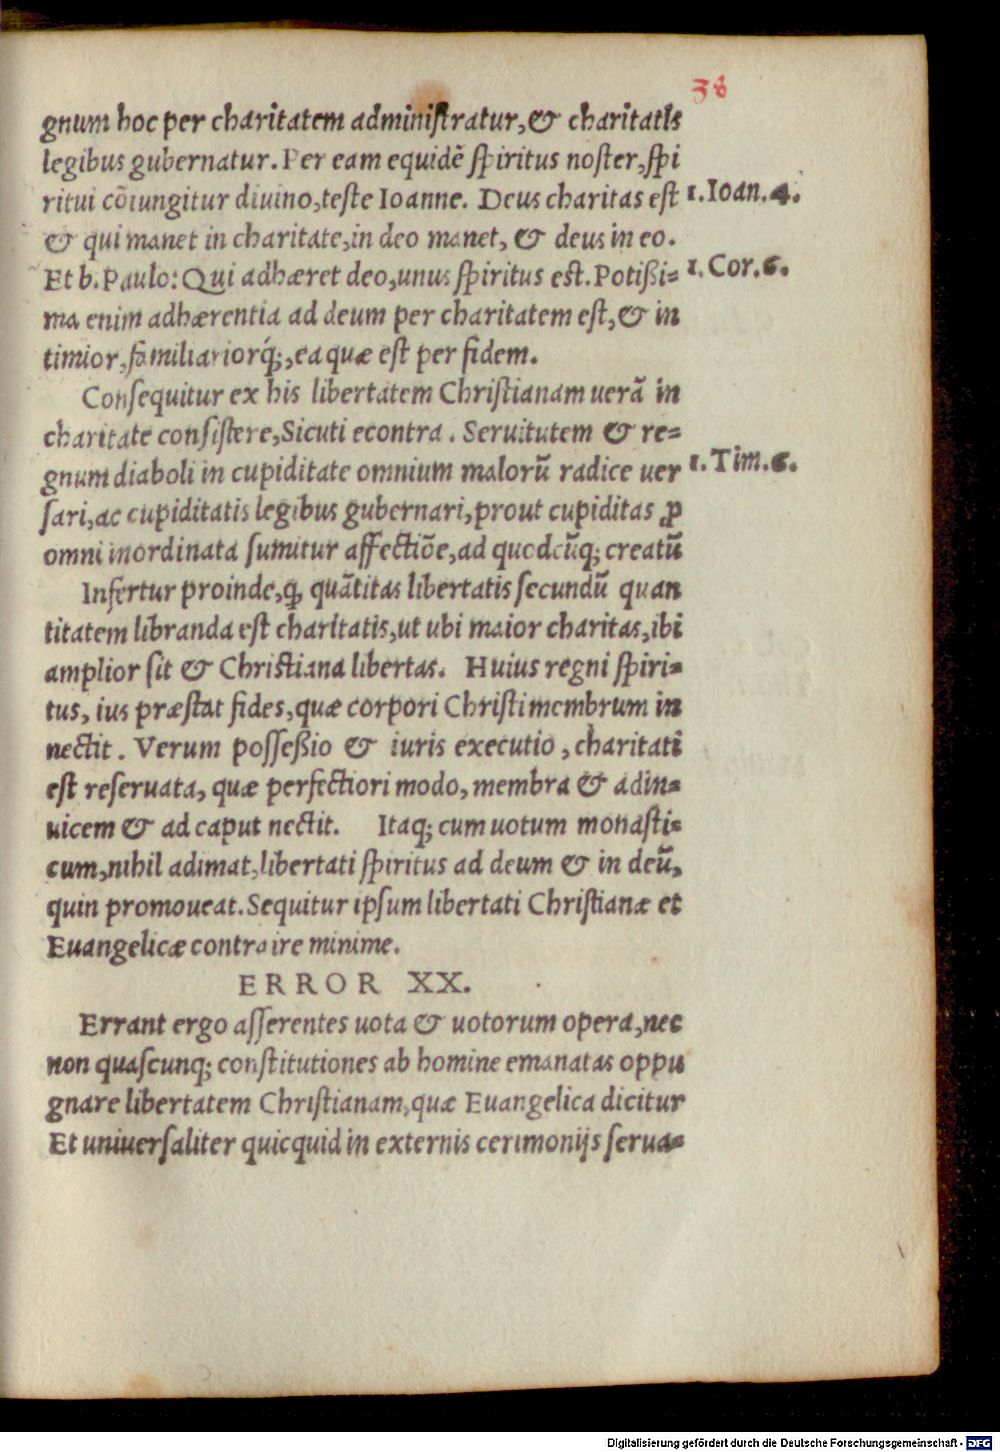 38
gnum hoc per charitatem administratur,& charitatis
legibus gubernatur. Per eam equidē spiritus noster,spi
ritui cōiungitur diuino,teste Ioanne. Deus charitas est
1.Ioan.4.
& qui manet in charitate,in deo manet, & deus in eo.
Et b.Paulo: Qui adhæret deo,unus spiritus est. Potißi=
1.Cor.6.
ma enim adhærentia ad deum per charitatem est,& in
timior,familiariorq́;,ea quæ est per fidem.
Consequitur ex his libertatem Christianam uerā in
charitate consistere,Sicuti econtra. Seruitutem & re=
gnum diaboli in cupiditate omnium malorū radice uer
1.Tim.6.
sari,ac cupiditatis legibus gubernari,prout cupiditas ꝓ
omni inordinata sumitur affectiōe,ad quodcūq; creatū
Infertur proinde,ꝙ quātitas libertatis secundū quan
titatem libranda est charitatis,ut ubi maior charitas,ibi
amplior sit & Christiana libertas. Huius regni spiri=
tus, ius præstat fides,quæ corpori Christi membrum in
nectit. Verum posseßio & iuris executio, charitati
est reseruata, quæ perfectiori modo, membra & adin=
uicem & ad caput nectit. Itaq; cum uotum monasti=
cum,nihil adimat,libertati spiritus ad deum & in deū,
quin promoueat. Sequitur ipsum libertati Christianæ et
Euangelicæ contra ire minime.
ERROR XX.
Errant ergo asserentes uota & uotorum opera,nec
non quascunq; constitutiones ab homine emanatas oppu
gnare libertatem Christianam,quæ Euangelica dicitur
Et uniuersaliter quicquid in externis cerimonijs serua=
Digitalisierung gefördert durch die Deutsche Forschungsgemeinschaft - DFG